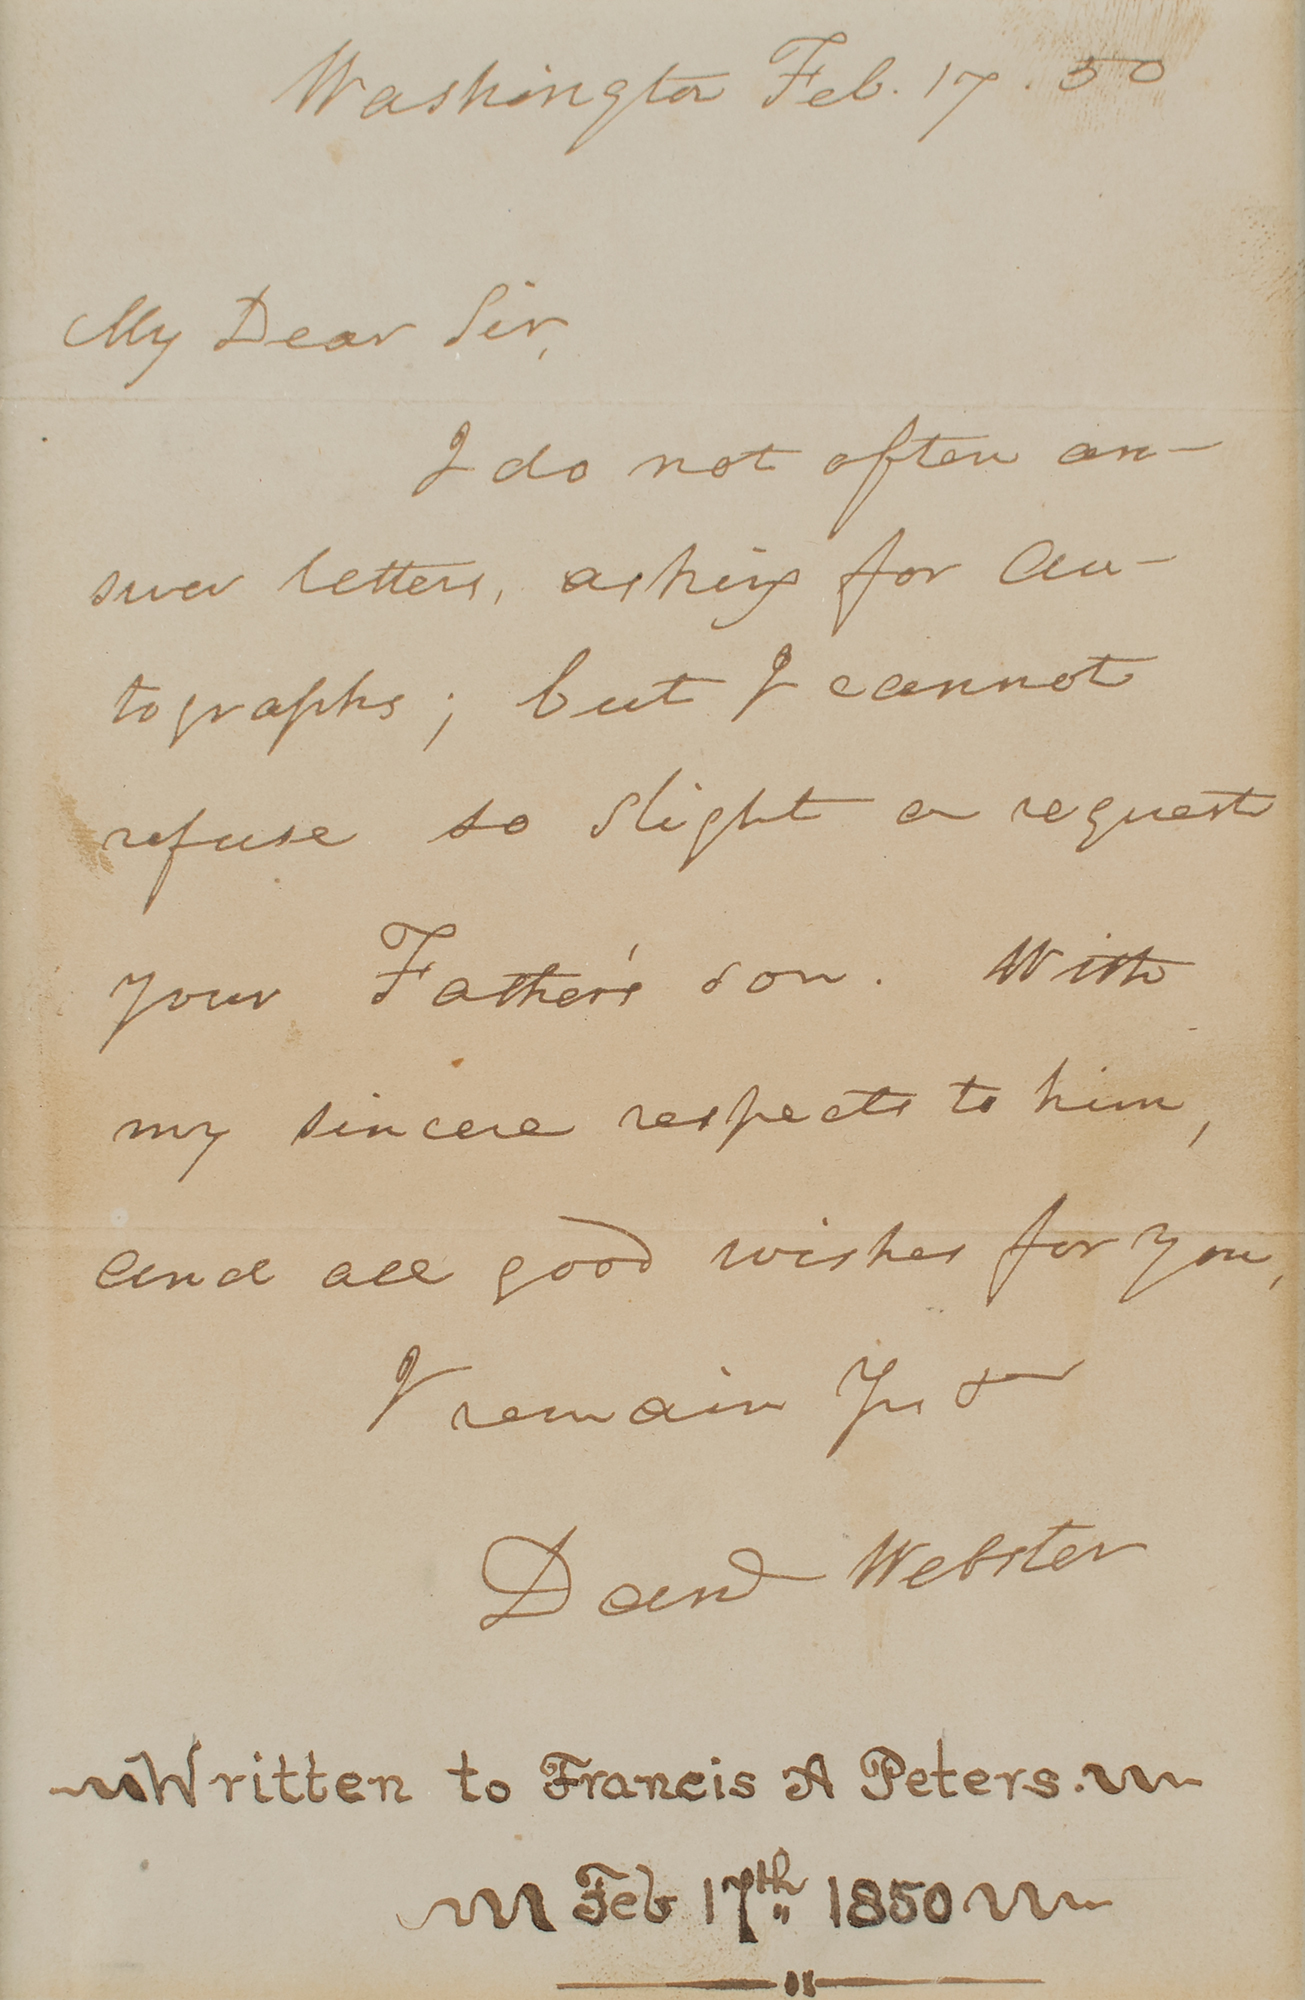 Washington Feb. 17. 50
My Dear Sir,
I do not often an-
swer letters, asking for au-
tographs; but I cannot
refuse so slight a request
your Father's son. With
my sincere respects to him,
and all good wishes for you,
I remain Yrs &
Danl Webster
Written to Francis A Peters.
Feb 17th 1850